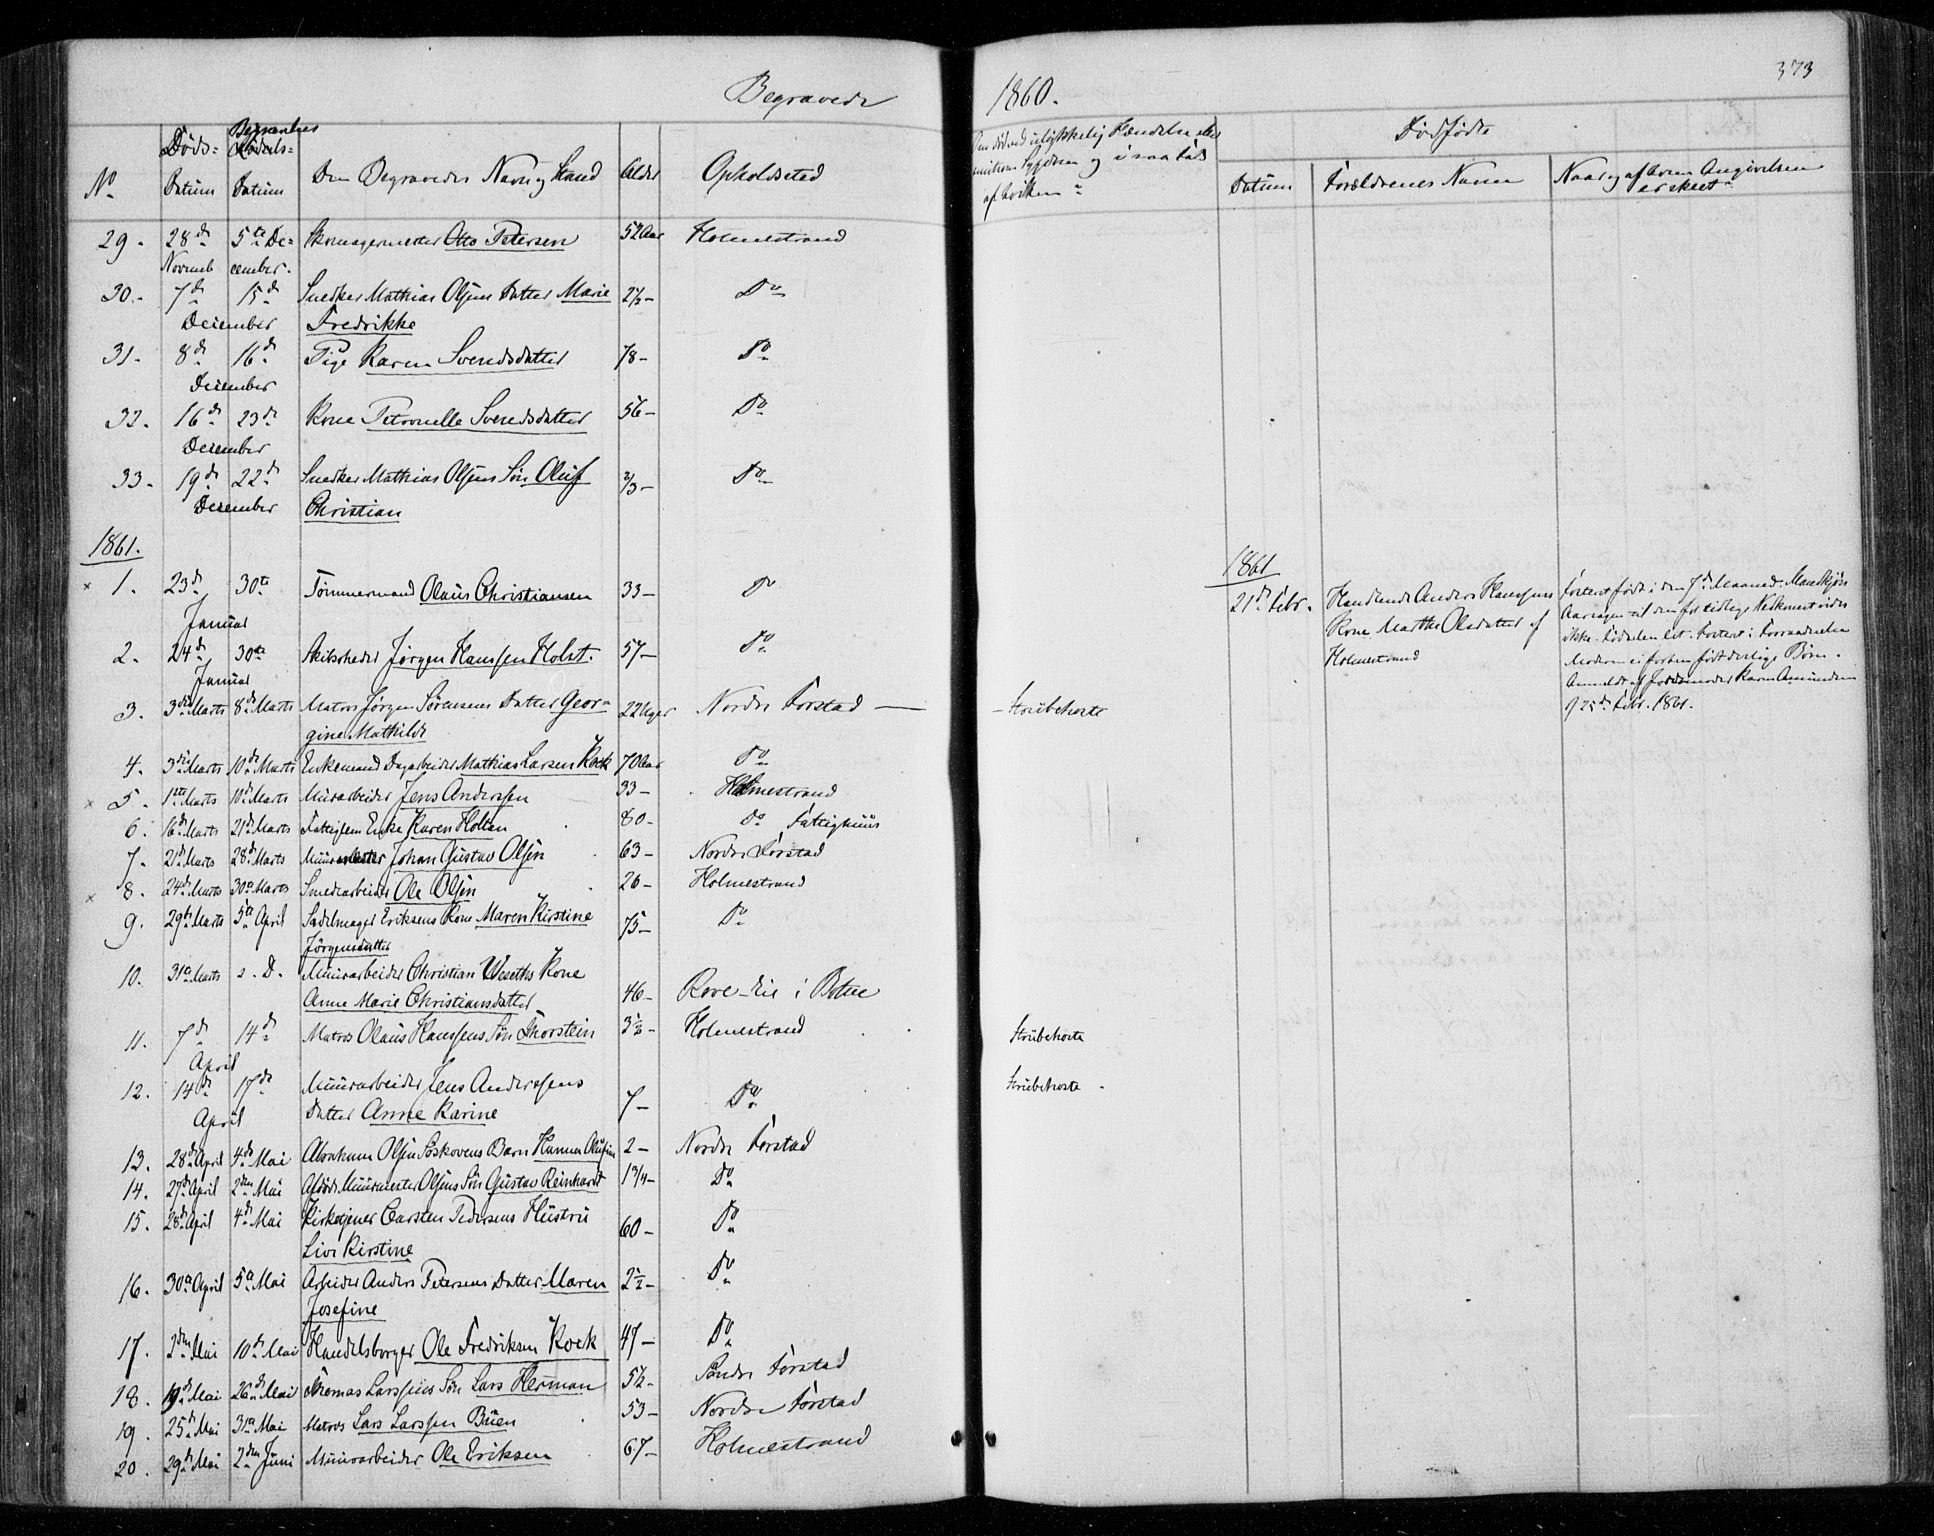 Begravede 1860. 373
No Døds= Datum Begravelses Datum Den Begravedes Navn og Stand Alder Opholdssted
Dødfødte
Datum Forældrenes Navne Naar og af hvem Angivelsen er skeet
29. 28de Novemb 5te December. Skomagermester Otto Petersen 52 Aar Holmestrand
30. 7de 15de December Snedker Mathias Olsens Datter Marie Fredrikke 2½ Do
31. 8de 16de December Pige Karen Svendsdatter 78 Do
32. 16de 23de December Kone Petronelle Svendsdatter 56 Do
33. 19de 22de December Snedker Mathias Olsens Søn Oluf Christian 2/3 Do
1861.
× 1. 23de 30te Januar Tømmermand Olaus Christiansen 33 Do
2. 24de 30te Januar Skibsreder Jørgen Hanssen Holst. 57 Do
3. 3die Marts 8de Marts Matros Jørgen Sørensens Datter Georgine Mathilde 22 Uger Nordre Forstad Strubehoste
4. 3die Marts 10de Marts Enkemand Dagarbeider Mathias Larsen Kock 70 Aar Do
× 5. 1ste Marts 10de Marts Muurarbeider Jens Anderssen 33 Holmestrand
6. 16de Marts 21de Marts Fattiglem Enke Karen Holtan 80 Do Fattighuus
7. 21de Marts 28de Marts Muurmester Johan Gustav Olsen 63 Nordre Forstad
× 8. 24de Marts 30te Marts Smedarbeider Ole Olsen 26 Holmestrand
9. 29de Marts 5te April Sadelmager Eriksens Kone Maren Kirstine Jørgensdatter 75 Do
10. 31te Marts D. Muurarbeider Christian Weseths Kone
Anne Marie Christiansdatter 46 Rove-Eie i Botne
11. 7de 14de April Matros Olaus Hanssens Søn Thorstein 3½ Holmestrand Strubehoste
12. 14de 17de April Muurarbeider Jens Anderssens
Datter Anne Karine 7 Do Strubehoste
13. 28de April 4de Mai Abraham Olsen Søskovens Barn Hanna Olufine 2 Nordre Forstad
14. 27de April 2den Mai Afdøde Muurmester Olsens Søn Gustav Reinhardt 1¾ Do
15. 28de April 4de Mai Kirketjener Carsten Pedersens Hustru
Live Kirstine 60 Do
16. 30te April 5te Mai Arbeider Anders Petersens Datter Maren
Josefine 2½ Do
17. 2den Mai 10de Mai Handelsborger Ole Fredriksen Kock 47 Do
18. 19de Mai 26de Mai Thomas Larssens Søn Lars Herman 5½ Søndre Forstad
19. 25de Mai 31te Mai Matros Lars Larssen Buen 53 Nordre Forstad
20. 29de Mai 2den Juni Muurarbeider Ole Eriksen 67 Holmestrand
1861
21de Febr. Handlende Anders Hanssens
Kone Marthe Olsdatter af
Holmestrand
Fosteret født i den 7de Maaned. Mandkjøn
Aarsagen til den for tidlige Nedkomst vides
ikke.
Moderen ei forhen født dødlige Børn.
Anmeldt af Jordemoder Karen Amundsen
25de Febr. 1861.